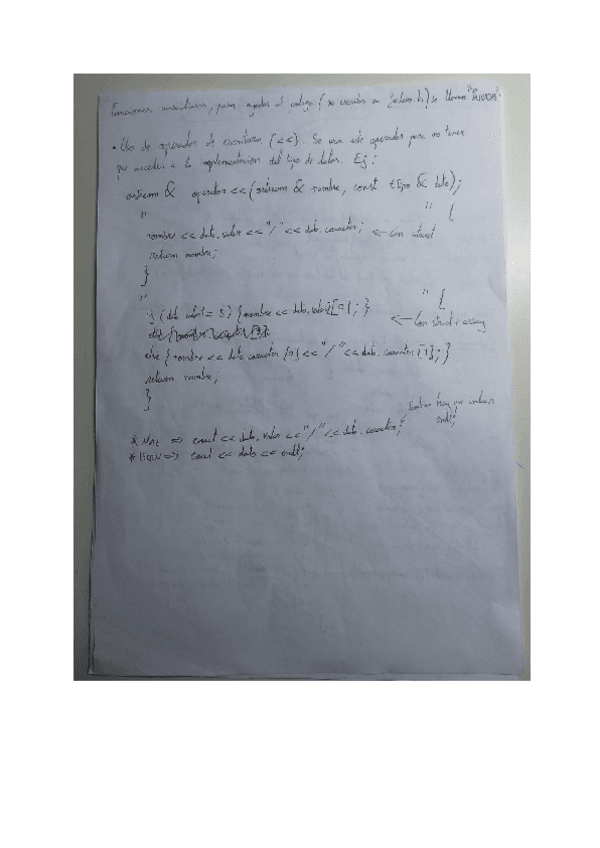 Funciones auxiliares, para ayudar al codigo (no escritas en .h) se llaman "PRIVADAS".
• Uso de operador de escritura (<<). Se usa este operador para no tener
que acceder a la implementación del tipo de datos. Ej:
ostream & operator <<(ostream & nombre, const tTipo & dato);
" " {
nombre << dato.valor << "/" << dato.caracter; <— Con struct
return nombre;
}
" " {
if (dato.valor != 5) {nombre << dato.valor[0]; }
<— Con struct y array
else {nombre << dato.caracter [0] << "/" << dato.caracter [1]; }
return nombre;
}
* MAL => cout << dato.valor << "/" << dato.caracter;
hay que
endl;
* BIEN => cout << dato << endl;